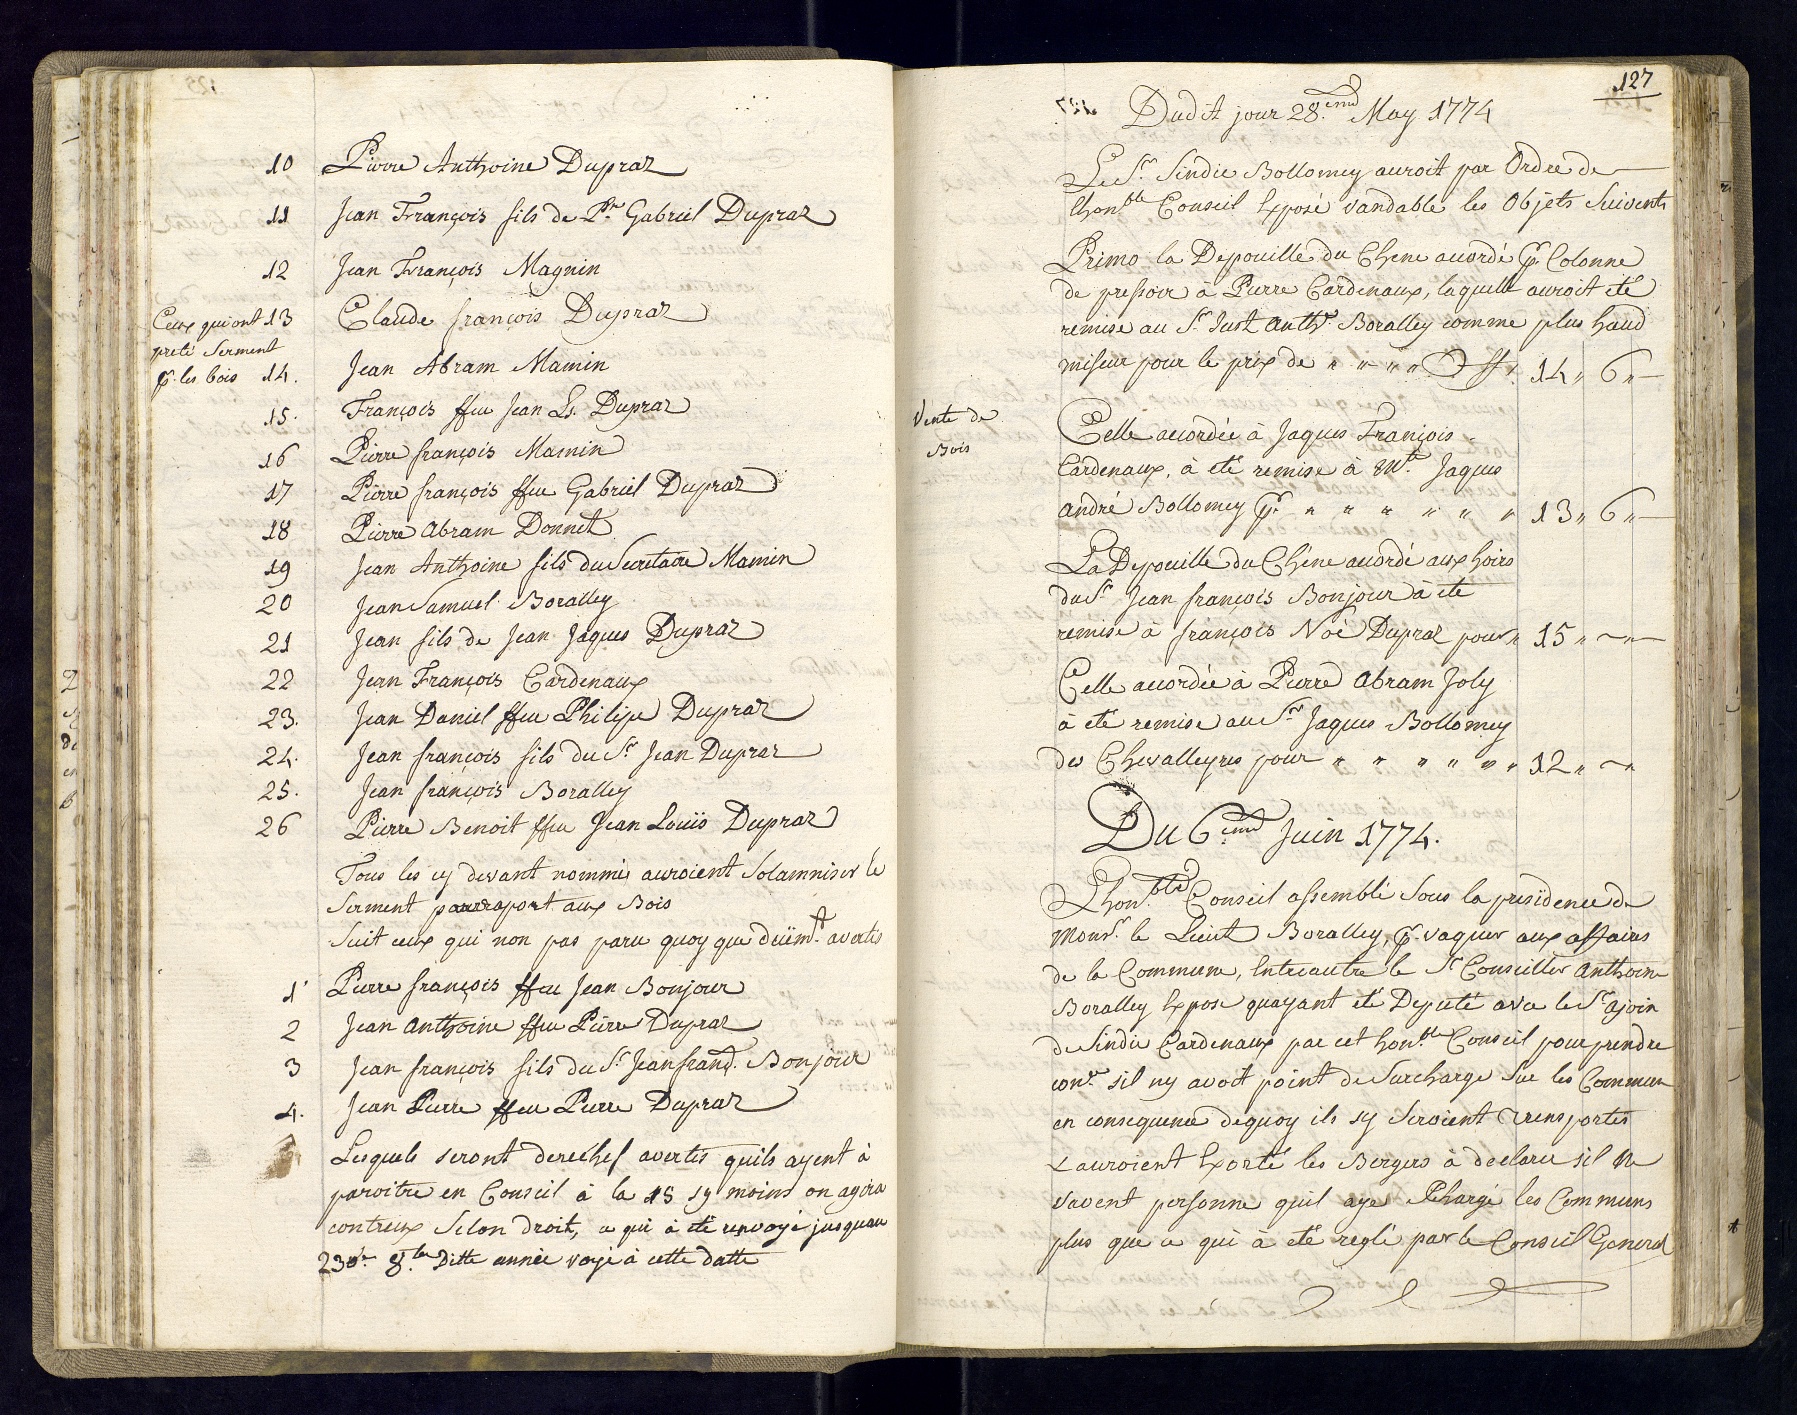 10 Pierre Anthoine Dupraz
11 Jean François fils de Pre Gabriel Dupraz
12 Jean François Magnin
Ceux qui ont 13 Claude françois Dupraz
preté Serment
pr. les bois 14. Jean Abram Mamin
15. François ffeu Jean Ls. Dupraz
16 Pierre françois Mamin
17 Pierre françois ffeu Gabriel Dupraz
18 Pierre Abram Donnet
19 Jean Anthoine fils du Secretaire Mamin
20 Jean Samuel Boralley
21 Jean fils de Jean Jaques Dupraz
22 Jean François Cardenaux
23. Jean Daniel ffeu Philipe Dupraz
24. Jean françois fils du Sr. Jean Dupraz
25. Jean françois Boralley
26 Pierre Benoit ffeu Jean Louïs Dupraz
Tous les cy devant nommés auroient Solamniser le
Serment par raport aux Bois
Suit ceux qui non pas paru quoy que deüemt. avertis
1 Pierre françois ffeu Jean Bonjour
2 Jean Anthoine ffeu Pierre Dupraz
3 Jean françois fils du Sr. Jean franç. Bonjour
4. Jean Pierre ffeu Pierre Dupraz
Lesquels seront derechef avertis quils ayent à
paroitre en Conseil à la 15 sy moins on agira
contreux Selon droit, ce qui à été renvoyé jusquau
23e. 8bre Ditte année voyé à cette datte
127
Dudit jour 28.eme May 1774
Le Sr. Sindic Bollomey auroit par Ordre de
Lhonble Conseil Exposé vandable les Objets Suivents
Primo la Depouille du Chene accordé pr. Colonne
de pressoir à Pierre Cardenaux, laquelle auroit été
remise au Sr. Just Anthe. Boralley comme plus haud
miseur pour le prix de " " " " ff 14 " 6 "
Vente de
Bois
Celle accordée à Jaques François
Cardenaux, à été remise à Mr. Jaques
André Bollomey pr. " " " " " " 13 " 6 "
La Depouille du Chéne accordé aux hoirs
du Sr. Jean françois Bonjour à été
remise à françois Noé Dupraz pour " 15 " "
Celle accordée à Pierre Abram Joly
à été remise au Sr. Jaques Bollomey
des Chevalleyres pour " " " " " " 12 " "
Du 6.eme Juin 1774.
Lhon.ble Conseil assemblé Sous la presidence de
Monsr. le Lieut Boralley, pr. vaquer aux affaires
de la Commune, Entreautre le Sr Conseiller Anthoine
Boralley Expose quayant été Deputé avec le Sr. ajoin
de Sindic Cardenaux par cet honble Conseil pour prendre
conce. sil ny avoit point de Surcharge Sur les Commun
en consequence dequoy ils sy Seroient transportés
& auroient Exorté les Bergers à declarer sil ne
savent personne quil aye Chargé les Communs
plus que ce qui à été reglé par le Conseil General